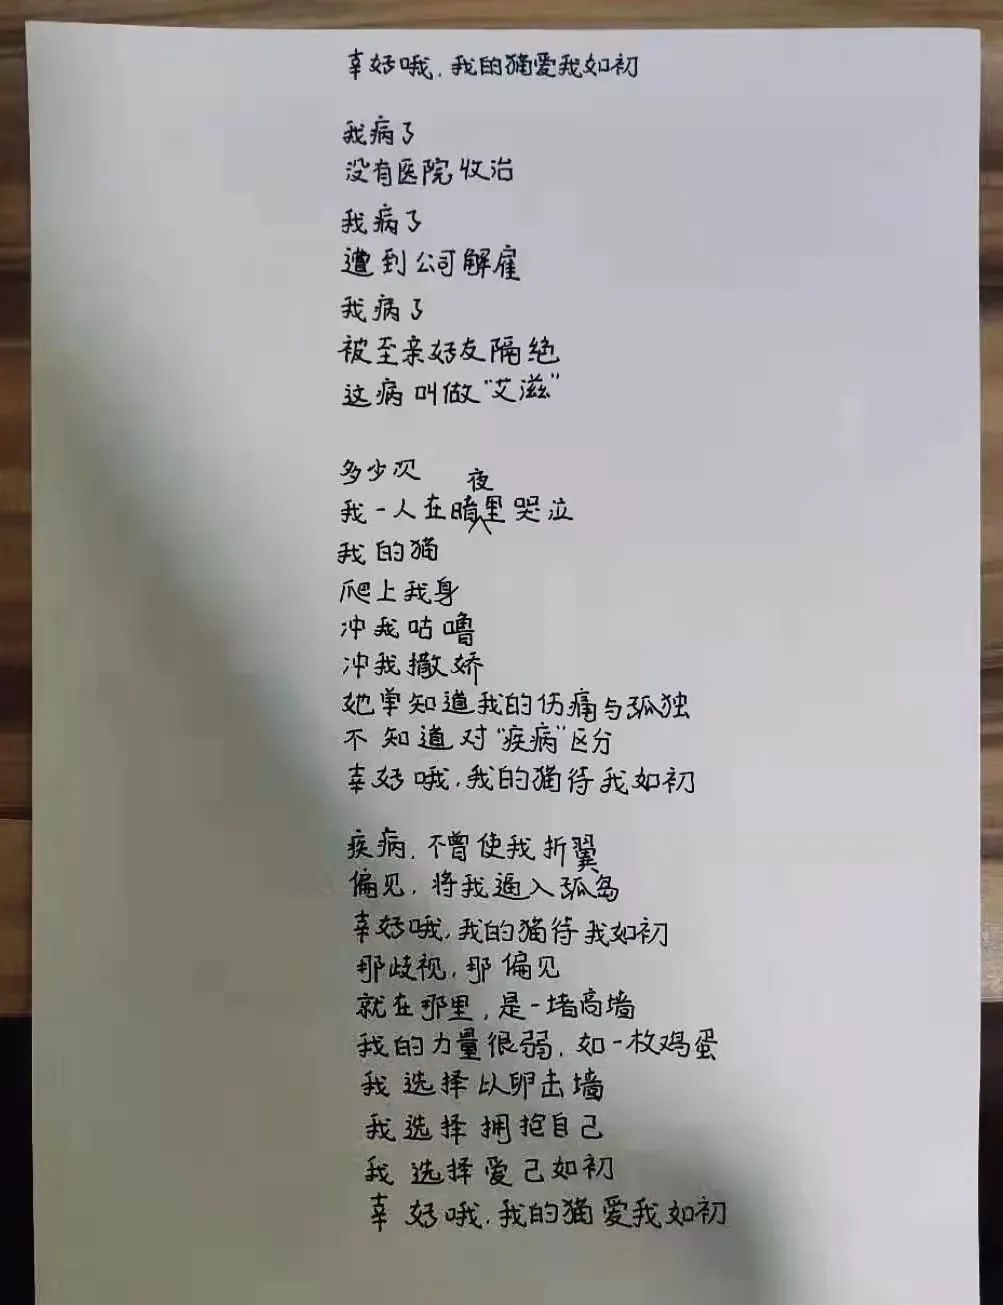 幸好哦，我的猫爱我如初
我病了
没有医院收治
我病了
遭到公司解雇
我病了
被至亲好友隔绝
这病叫做“艾滋”
多少次
我一人在暗夜里哭泣
我的猫
爬上我身
冲我咕噜
冲我撒娇
她单知道我的伤痛与孤独
不知道对“疾病”区分
幸好哦，我的猫待我如初
疾病，不曾使我折翼
偏见，将我逼入孤岛
幸好哦，我的猫待我如初
那歧视，那偏见
就在那里，是一堵高墙
我的力量很弱，如一枚鸡蛋
我选择以卵击墙
我选择拥抱自己
我选择爱己如初
幸好哦，我的猫爱我如初